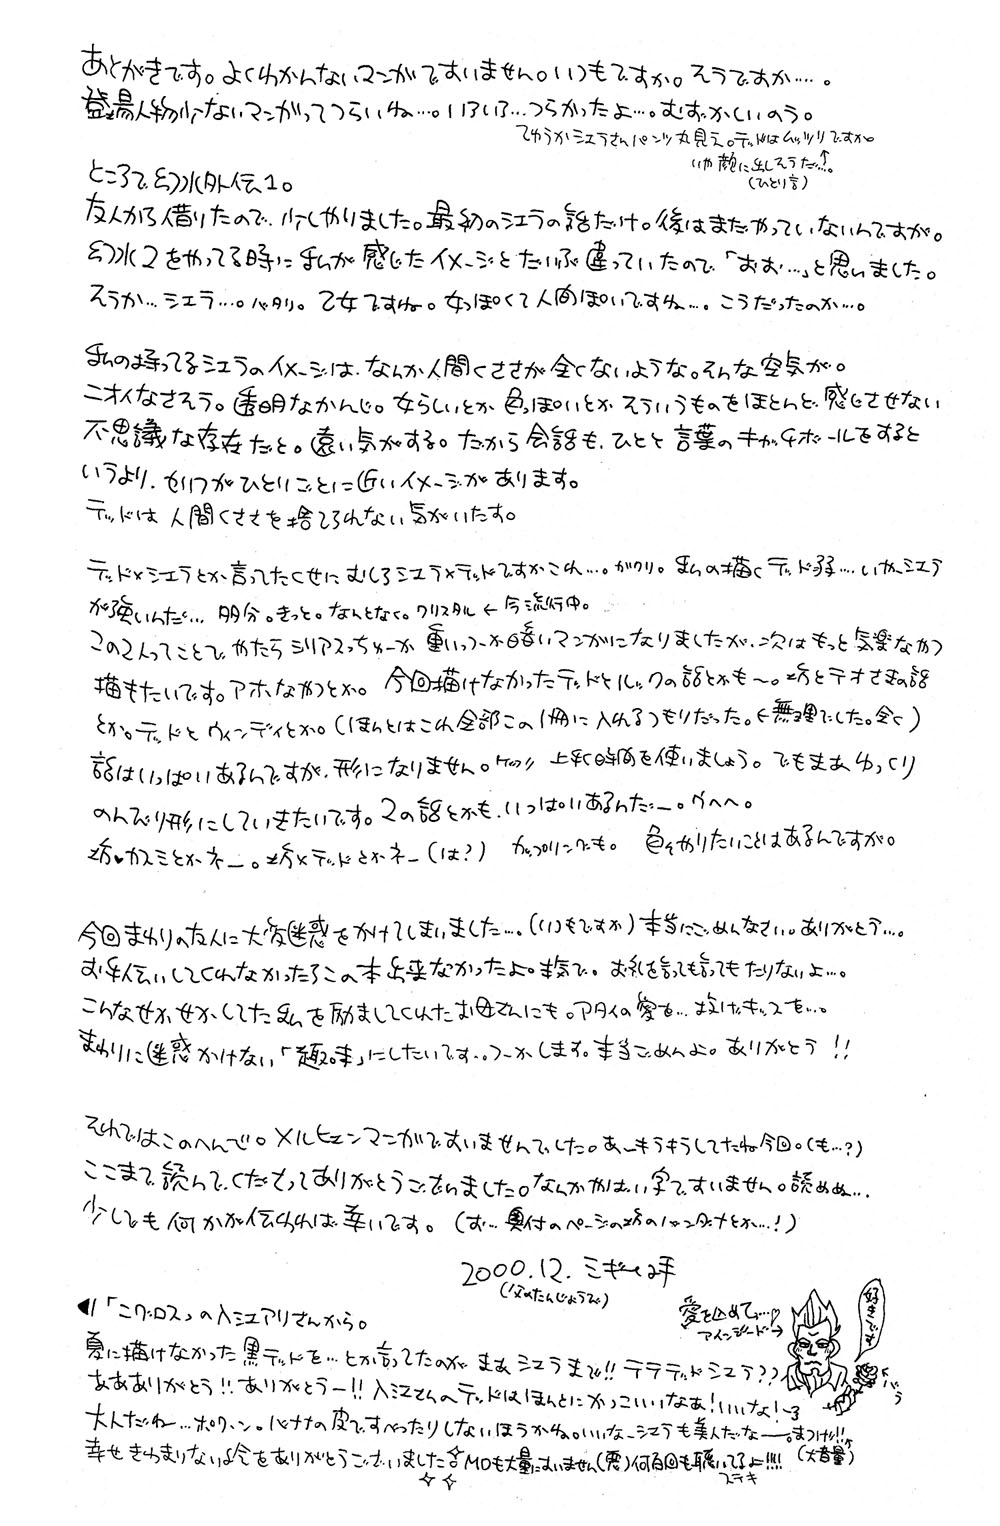 あとがきです。よくわかんないマンガですいません。いつもですか。そうですか‥‥。
登場人物少ないマンガってつらいね…。いろいろ…つらかったよ…。むずかしいのう。
てゆうかシエラさんパンツ丸見え。テッドはムッツリですか。
いや顔に出しそうだ…。↑
(ひとり言)
ところで幻水外伝1。
友人から借りたので、少しやりました。最初のシエラの話だけ。後はまだやっていないんですが。
幻水2をやってる時に私が感じたイメージとだいぶ違っていたので「おお…」と思いました。
そうか…シエラ…。バタリ。乙女ですね。女っぽくて人間ぽいですね…。こうだったのか…。
私の持ってるシエラのイメージは、なんか人間くささが全くないような。そんな空気が。
ニオイなさそう。透明なかんじ。女らしいとか色っぽいとかそういうものをほとんど感じさせない
不思議な存在だと。遠い気がする。だから会話も、ひとと言葉のキャッチボールをすると
いうより、セリフがひとりごとに近いイメージがあります。
テッドは人間くささを捨てられない気がいたす。
テッド×シエラとか言ってたくせにむしろシエラ×テッドですかこれ…。ガクリ。私の描くテッド弱‥‥いやシエラ
が強いんだ…多分。きっと。なんとなく。クリスタル←今流行中。
この2人ってことで、やたらシリアスっちゅーか重いっつーか暗いマンガになりましたが、次はもっと気楽なやつ
描きたいです。アホなやつとか。今回描けなかったテッドとルックの話とかも〜。坊とテオさまの話
とか。テッドとウィンディとか。(ほんとはこれ全部この1冊に入れるつもりだった。←無理でした。全く)
話はいっぱいあるんですが、形になりません。ケッ!! 上手く時間を使いましょう。でもまあゆっくり
のんびり形にしていきたいです。2の話とかも、いっぱいあるんだー。ウヘヘ。
坊♥カスミとかネー。坊×テッドとかネー(は?) カップリングも。色々やりたいことはあるんですが。
今回まわりの友人に大変迷惑をかけてしまいました…。(いつもですか)本当にごめんなさい。ありがとう…。
お手伝いしてくれなかったらこの本出来なかったよ。本気で。お礼を言っても言ってもたりないよ…。
こんなせかせかしてた私を励ましてくれたお母さんにも。アタイの愛を…投げキッスを…。
まわりに迷惑かけない「趣味」にしたいです…。つーかします。本当ごめんよ。ありがとう!!
それではこのへんで。メルヒェンマンガですいませんでした。あーキラキラしてたね今回。(も…?)
ここまで読んでくださってありがとうございました。なんかやばい字ですいません。読めぬ…
少しでも何かが伝われば幸いです。(お…奥付のページの坊のバンダナとか…!)
2000.12.
(父のたんじょうび)
◀「ニグロス」の入江アリさんから。
愛を込めて…♡
アインジード→
好きです
夏に描けなかった黒テッドを…とか言ってたのがまあシエラまで!!テテテッドシエラ??
ああありがとう!!ありがとうー!!入江さんのテッドはほんとにかっこいいなあ!いいな!〜3
←バラ
大人だわ…ポワーン。バナナの皮ですべったりしないほうかね。いいなーシエラも美人だなー。まつげ!!
幸せきわまりない絵をありがとうございました MDも大量にすいません(震)何百回も聴いてるよ!!!!
(大音量)
ステキ